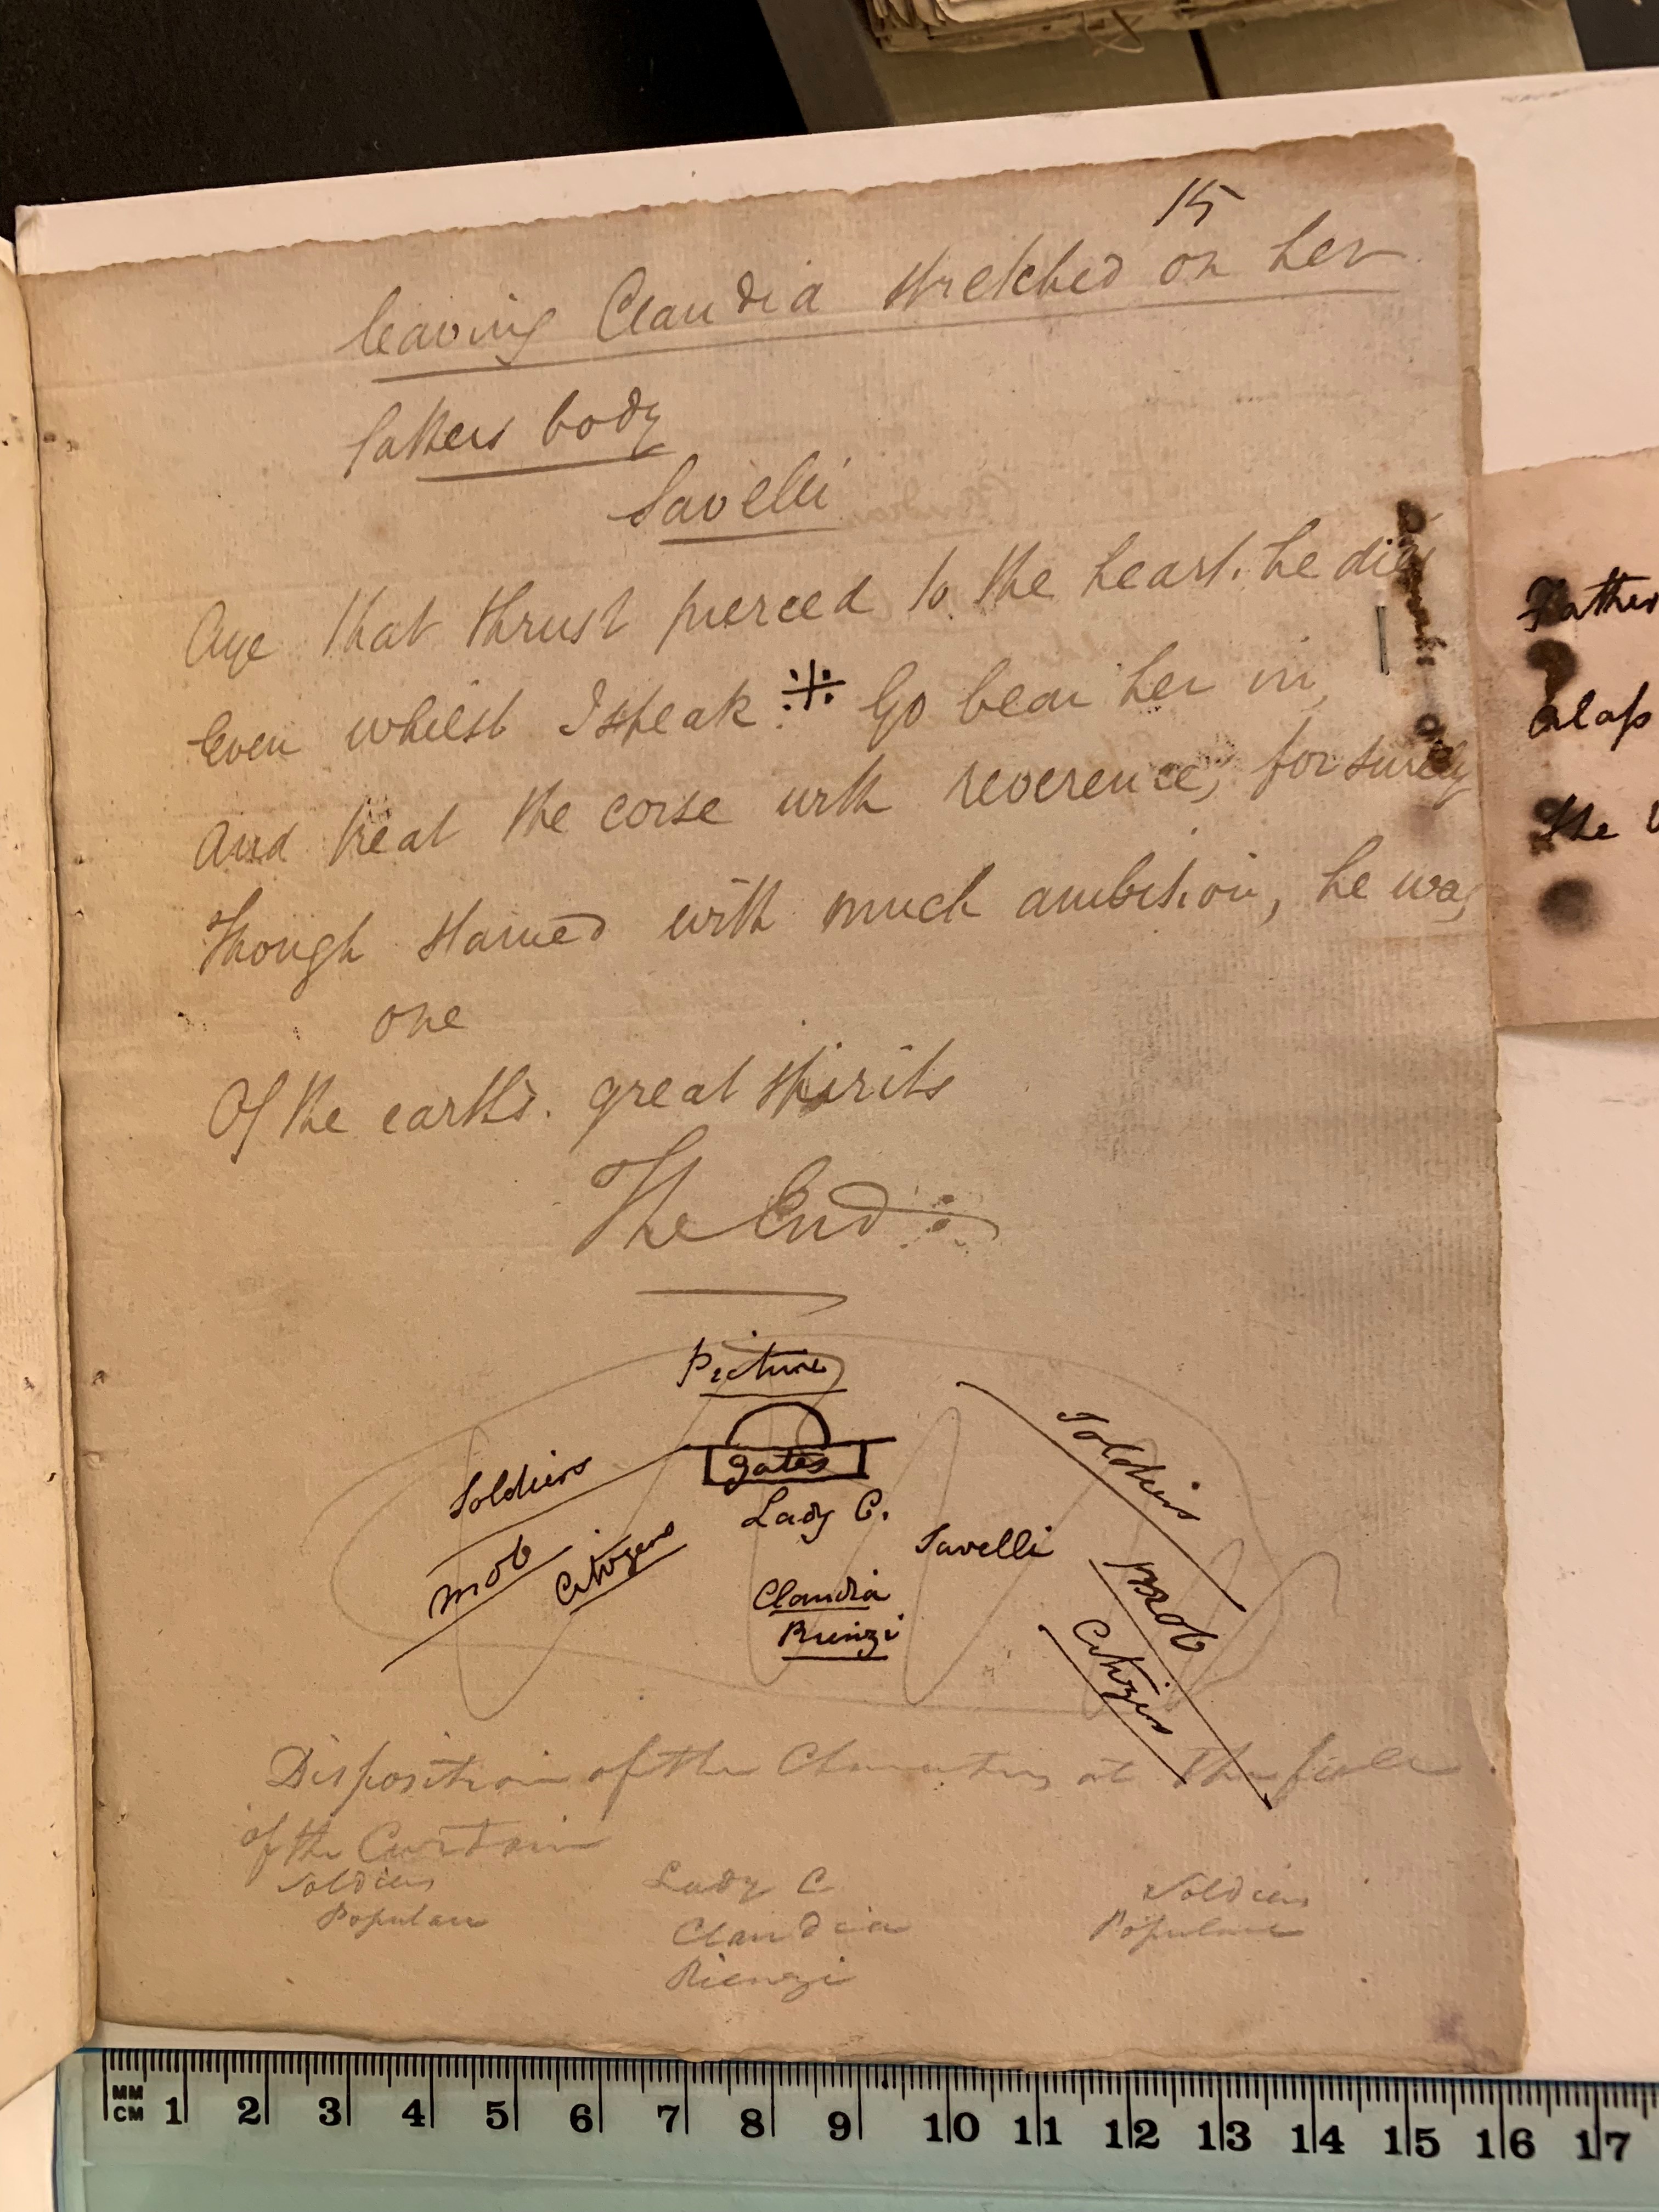 15
leaving Claudia stretched on her
fathers body
Savelli
Aye that thrust pierced to the heart. he dies
Even whilst I speak. ※ Go bear her in,
And treat the corse with reverence, for surely
Though stained with much ambition, he was
one
Of the earth's great spirits
The End
Picture
gates
Soldiers
Mob
Citizens
Lady C.
Savelli
Claudia
Rienzi
Soldiers
Mob
Citizens
Disposition of the Characters at the fall
of the Curtain
Soldiers Lady C Soldiers
Populace Claudia Populace
Rienzi
Father
alass
the
MM
CM 1 2 3 4 5 6 7 8 9 10 11 12 13 14 15 16 17